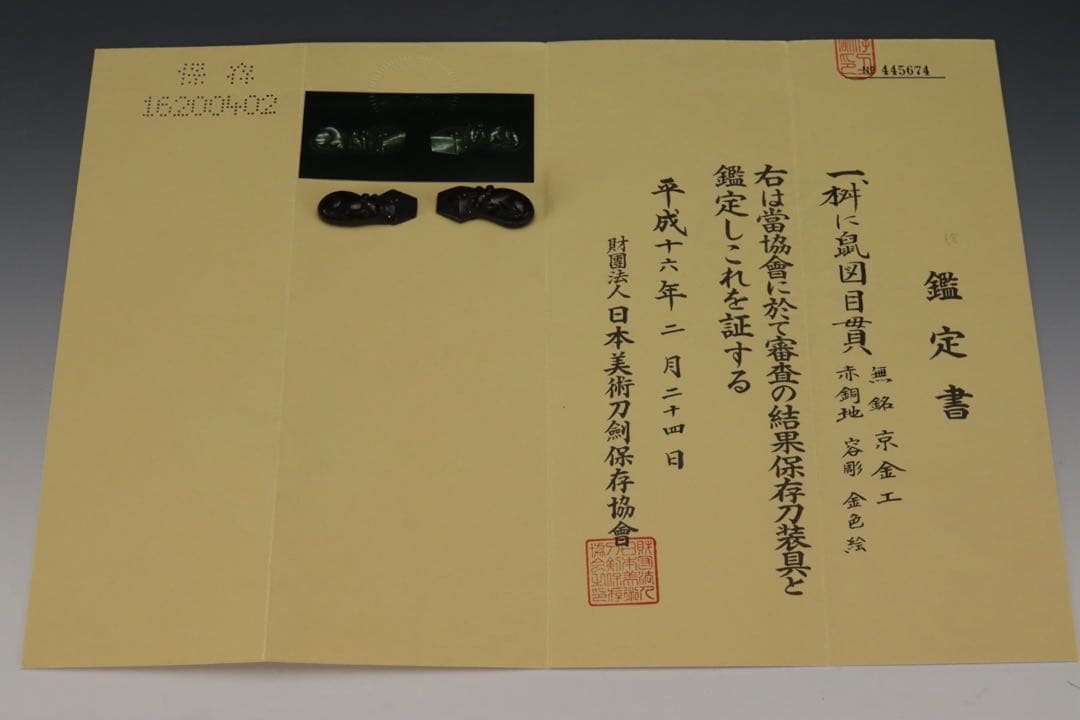 № 445674
鑑定書
一、桝に鼠図目貫
無銘 京金工
赤銅地 容彫 金色絵
右は當協會に於て審査の結果保存刀装具と
鑑定しこれを証する
平成十六年二月二十四日
財團法人日本美術刀劍保存協會
財團法人日本美術刀剣保存協会之印
保存
16200402